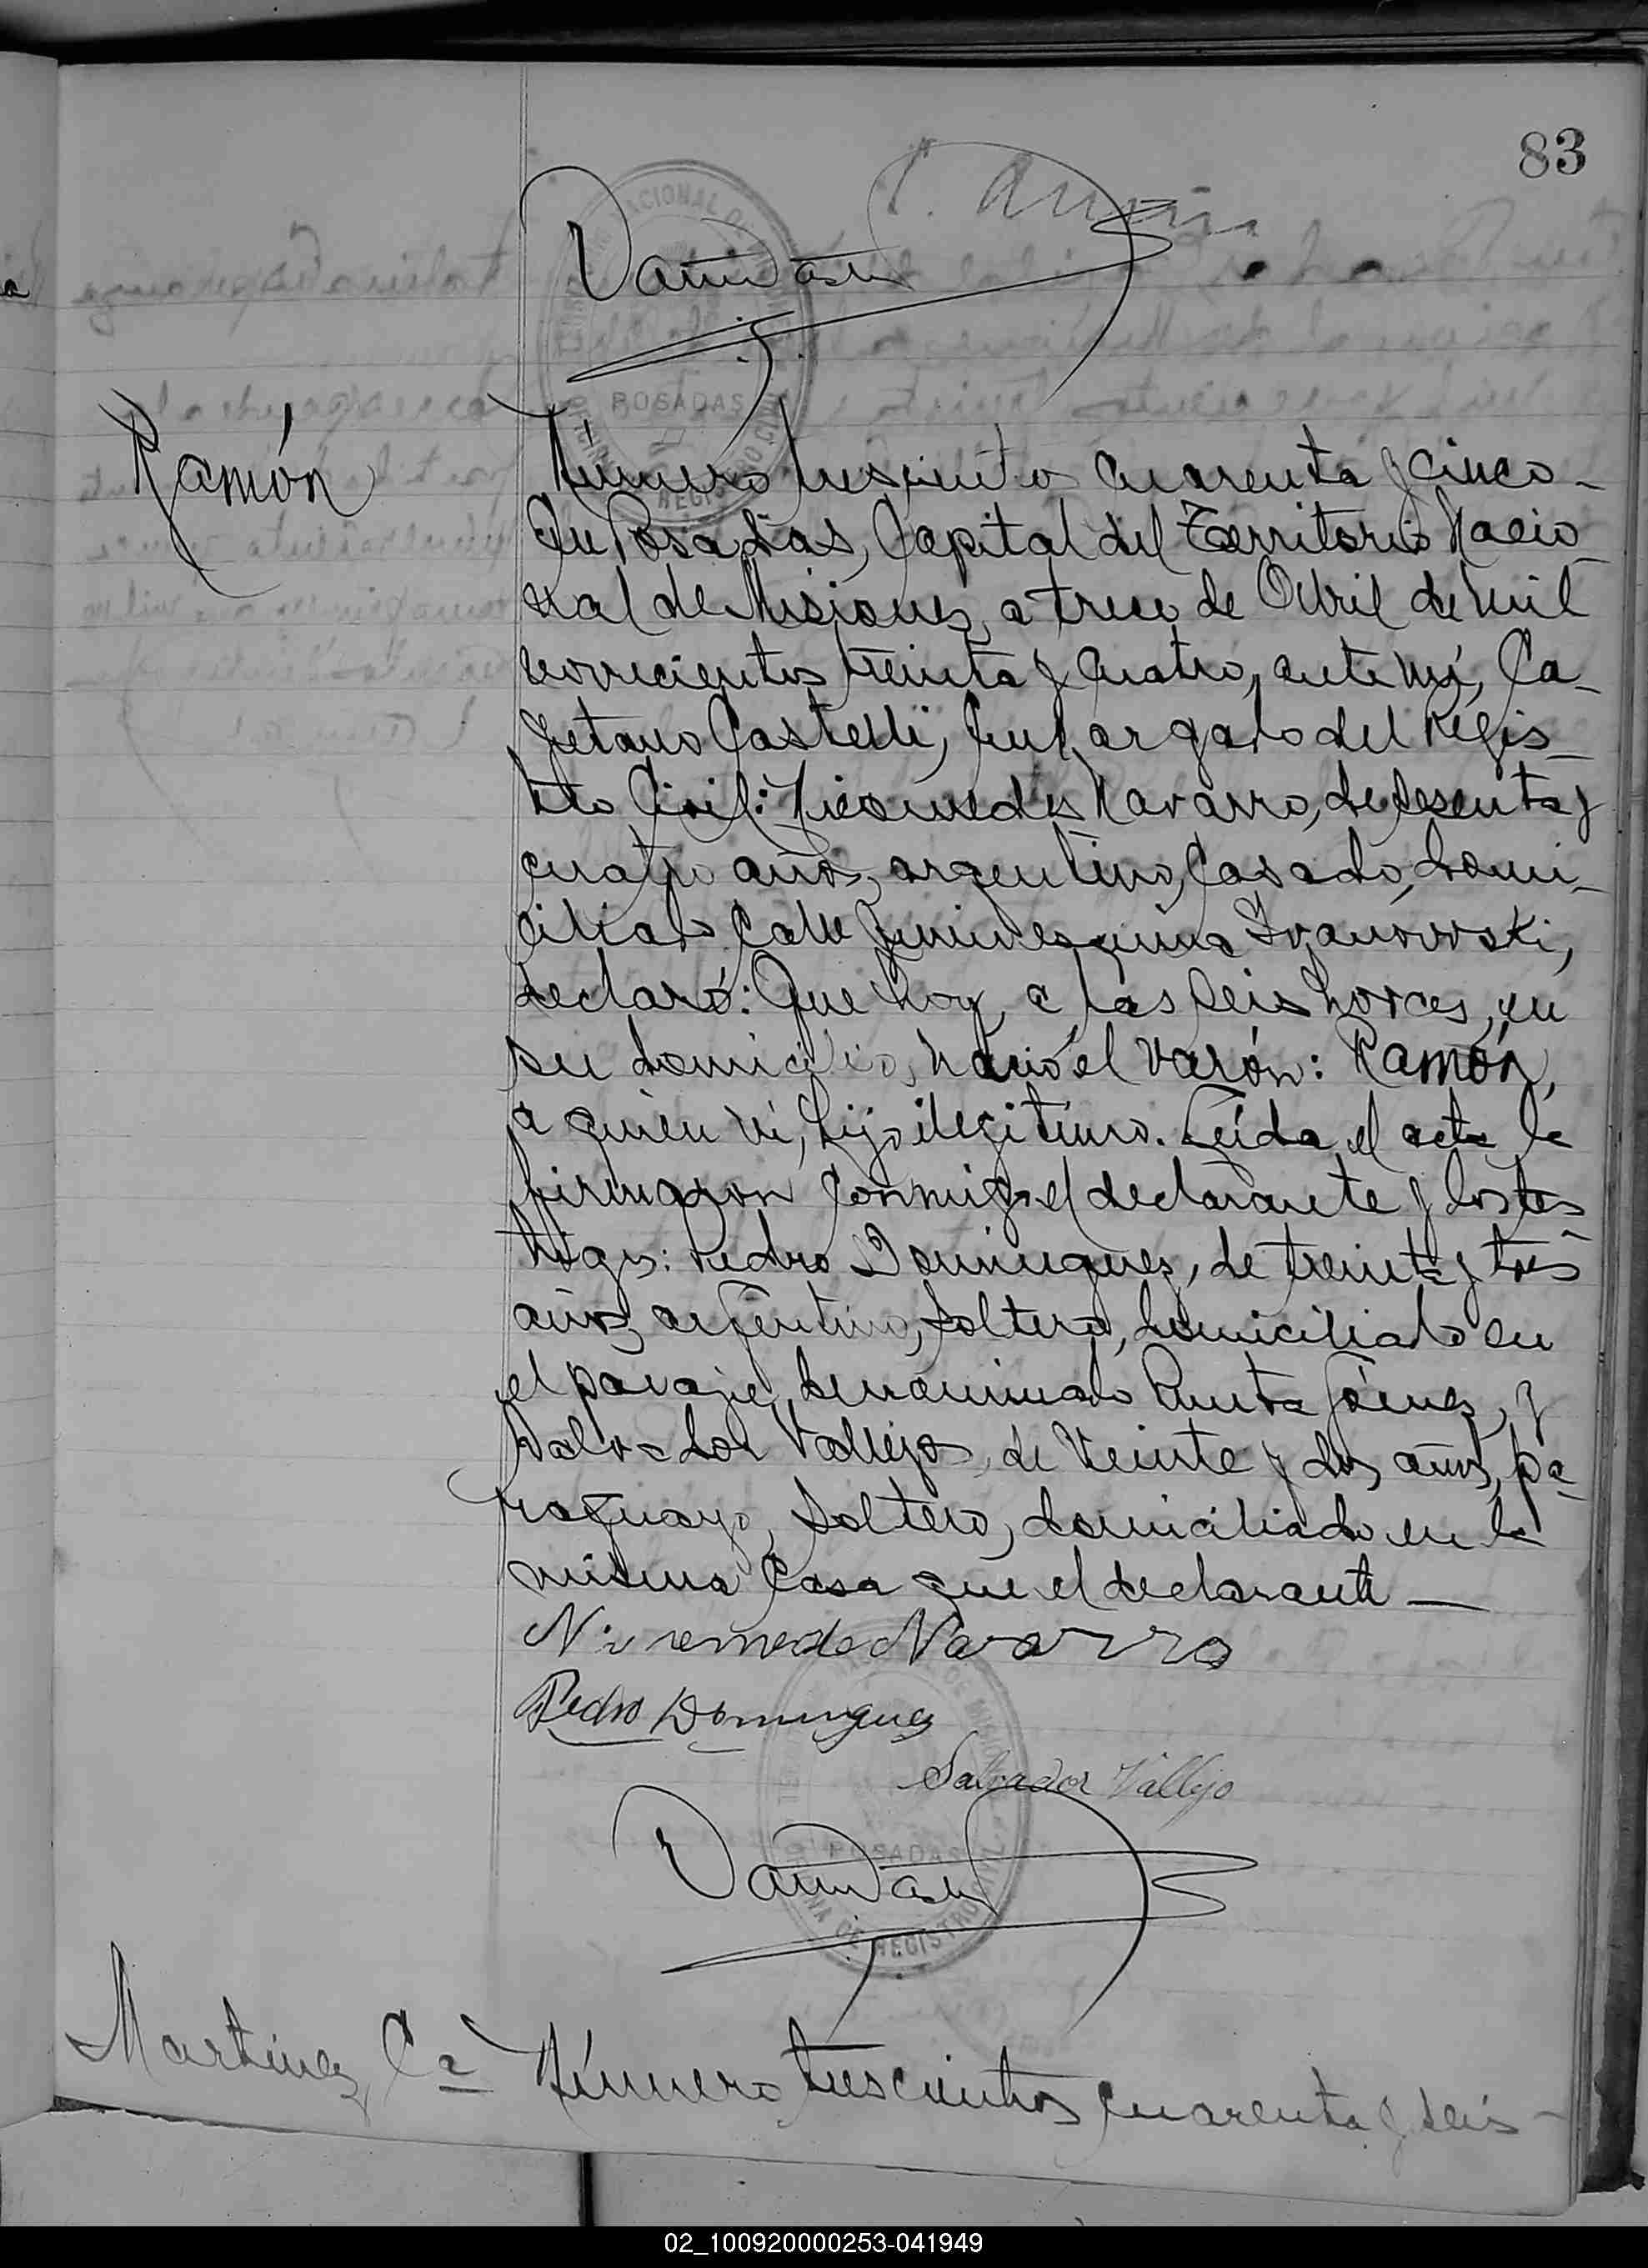 83
Ramón
Número trescientos cuarenta y cinco -
En Posadas, Capital del Territorio Nacio-
nal de Misiones, a trece de Abril de mil
novecientos treinta y cuatro, ante mí, Ca-
yetano Castelli, Encargado del Regis-
tro Civil: Nicomedes Navarro, de sesenta y
cuatro años, argentino, casado, domi-
ciliado calle Junin esquina Ivanowski,
declaró: Que hoy, a las seis horas, en
su domicilio, nació el varón: Ramón,
a quien ví, hijo ilegítimo. Leída el acta la
firmaron conmigo el declarante y los tes-
tigos: Pedro Dominguez, de treinta y tres
años, argentino, soltero, domiciliado en
el paraje denominado Punta Gómez, y
Salvador Vallejos, de veinte y dos años, pa-
raguayo, soltero, domiciliado en la
misma casa que el declarante —
Nicomede Navarro
Pedro Dominguez
Salvador Vallejo
POSADAS
REGISTRO CIVIL
Martínez, Ca
Número trescientos cuarenta y seis -
02_100920000253-041949